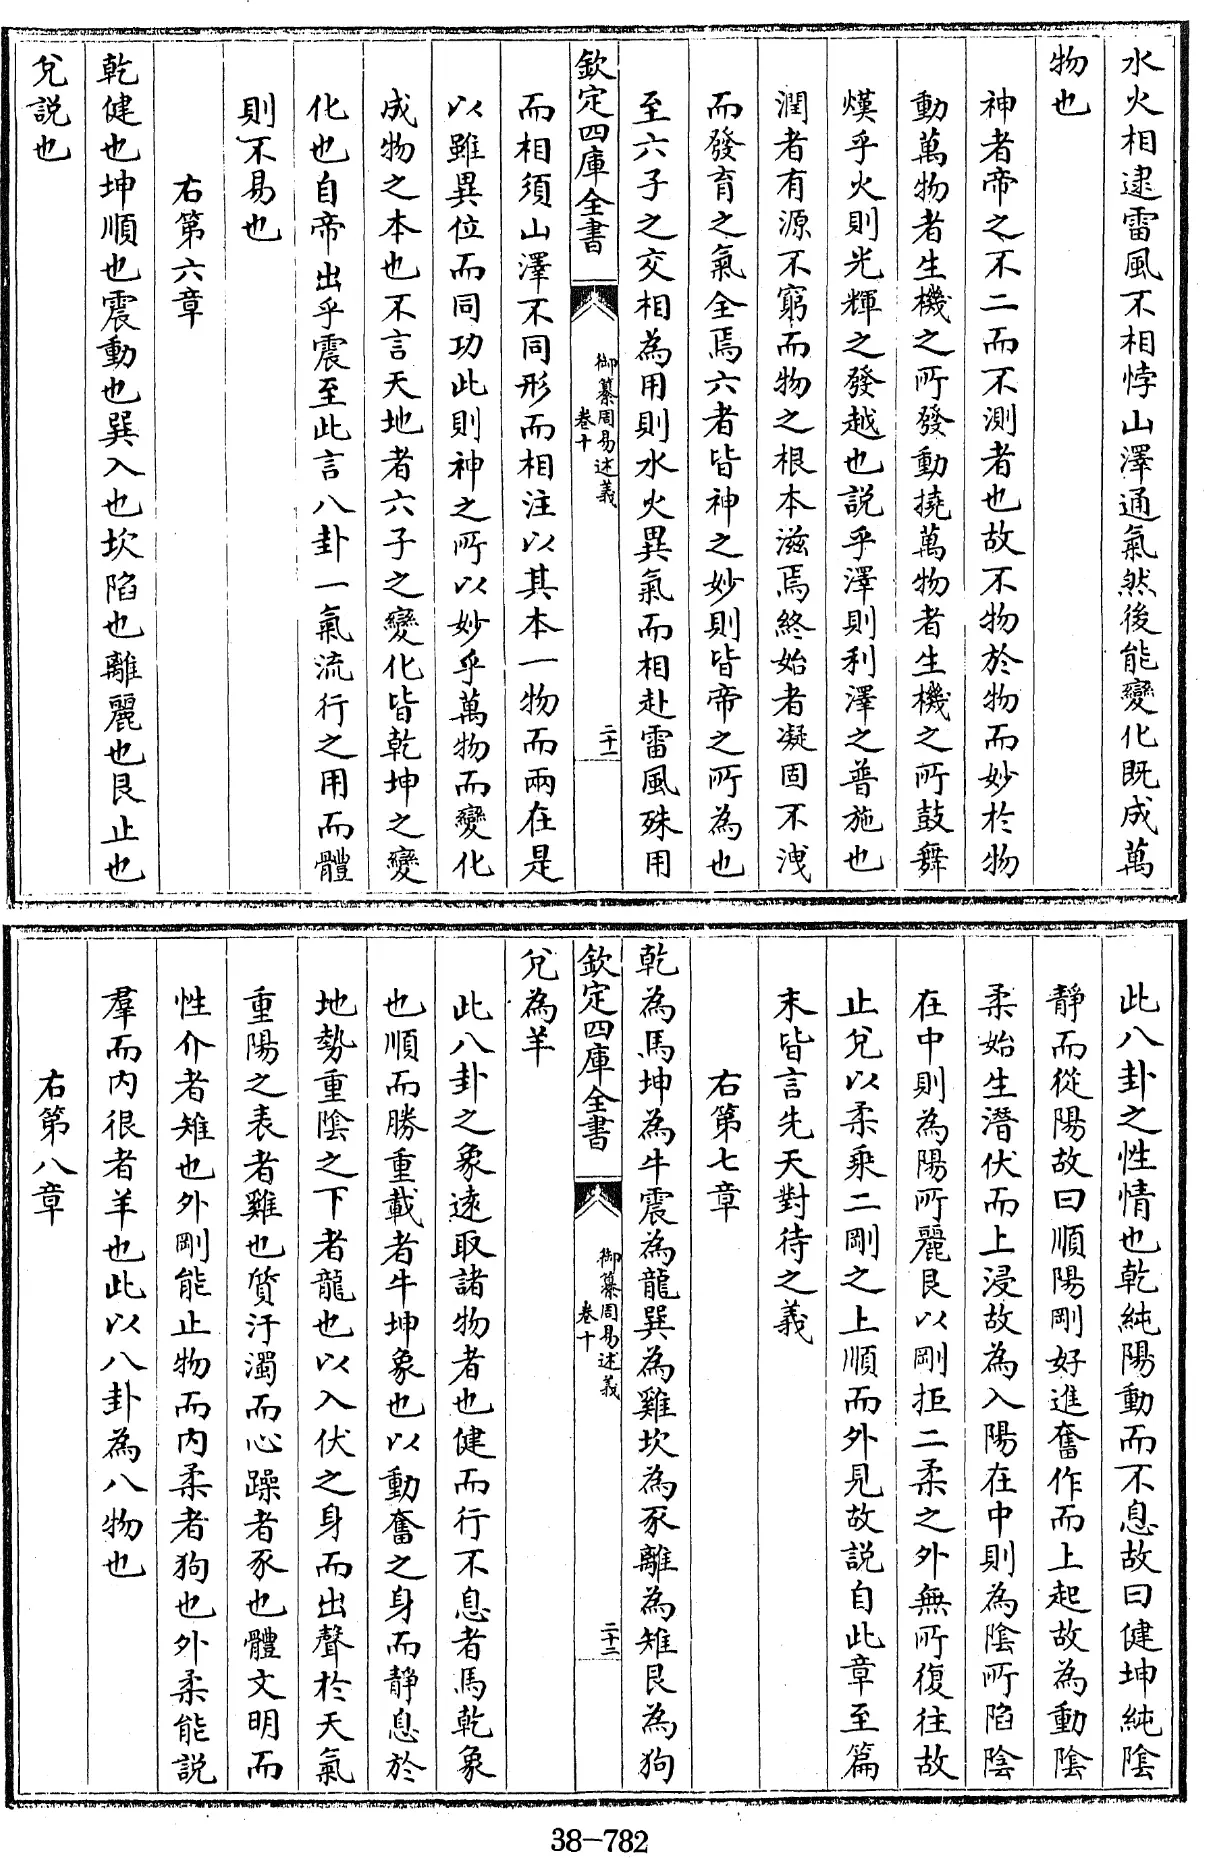 水火相逮雷風不相悖山澤通氣然後能變化既成萬
物也
神者帝之不二而不測者也故不物於物而妙於物
動萬物者生機之所發動撓萬物者生機之所鼓舞
熯乎火則光輝之發越也説乎澤則利澤之普施也
潤者有源不窮而物之根本滋焉終始者凝固不洩
而發育之氣全焉六者皆神之妙則皆帝之所為也
至六子之交相為用則水火異氣而相赴雷風殊用
欽定四庫全書
御纂周易述義
卷十
二十一
而相須山澤不同形而相注以其本一物而兩在是
以雖異位而同功此則神之所以妙乎萬物而變化
成物之本也不言天地者六子之變化皆乾坤之變
化也自帝出乎震至此言八卦一氣流行之用而體
則不易也
右第六章
乾健也坤順也震動也巽入也坎陷也離麗也艮止也
兌説也
此八卦之性情也乾純陽動而不息故曰健坤純陰
靜而從陽故曰順陽剛好進奮作而上起故為動陰
柔始生潛伏而上浸故為入陽在中則為陰所陷陰
在中則為陽所麗艮以剛拒二柔之外無所復往故
止兌以柔乘二剛之上順而外見故説自此章至篇
末皆言先天對待之義
右第七章
乾為馬坤為牛震為龍巽為雞坎為豕離為雉艮為狗
欽定四庫全書
御纂周易述義
卷十
二十二
兌為羊
此八卦之象遠取諸物者也健而行不息者馬乾象
也順而勝重載者牛坤象也以動奮之身而靜息於
地勢重陰之下者龍也以入伏之身而出聲於天氣
重陽之表者雞也質汙濁而心躁者豕也體文明而
性介者雉也外剛能止物而內柔者狗也外柔能説
羣而內很者羊也此以八卦為八物也
右第八章
38-782